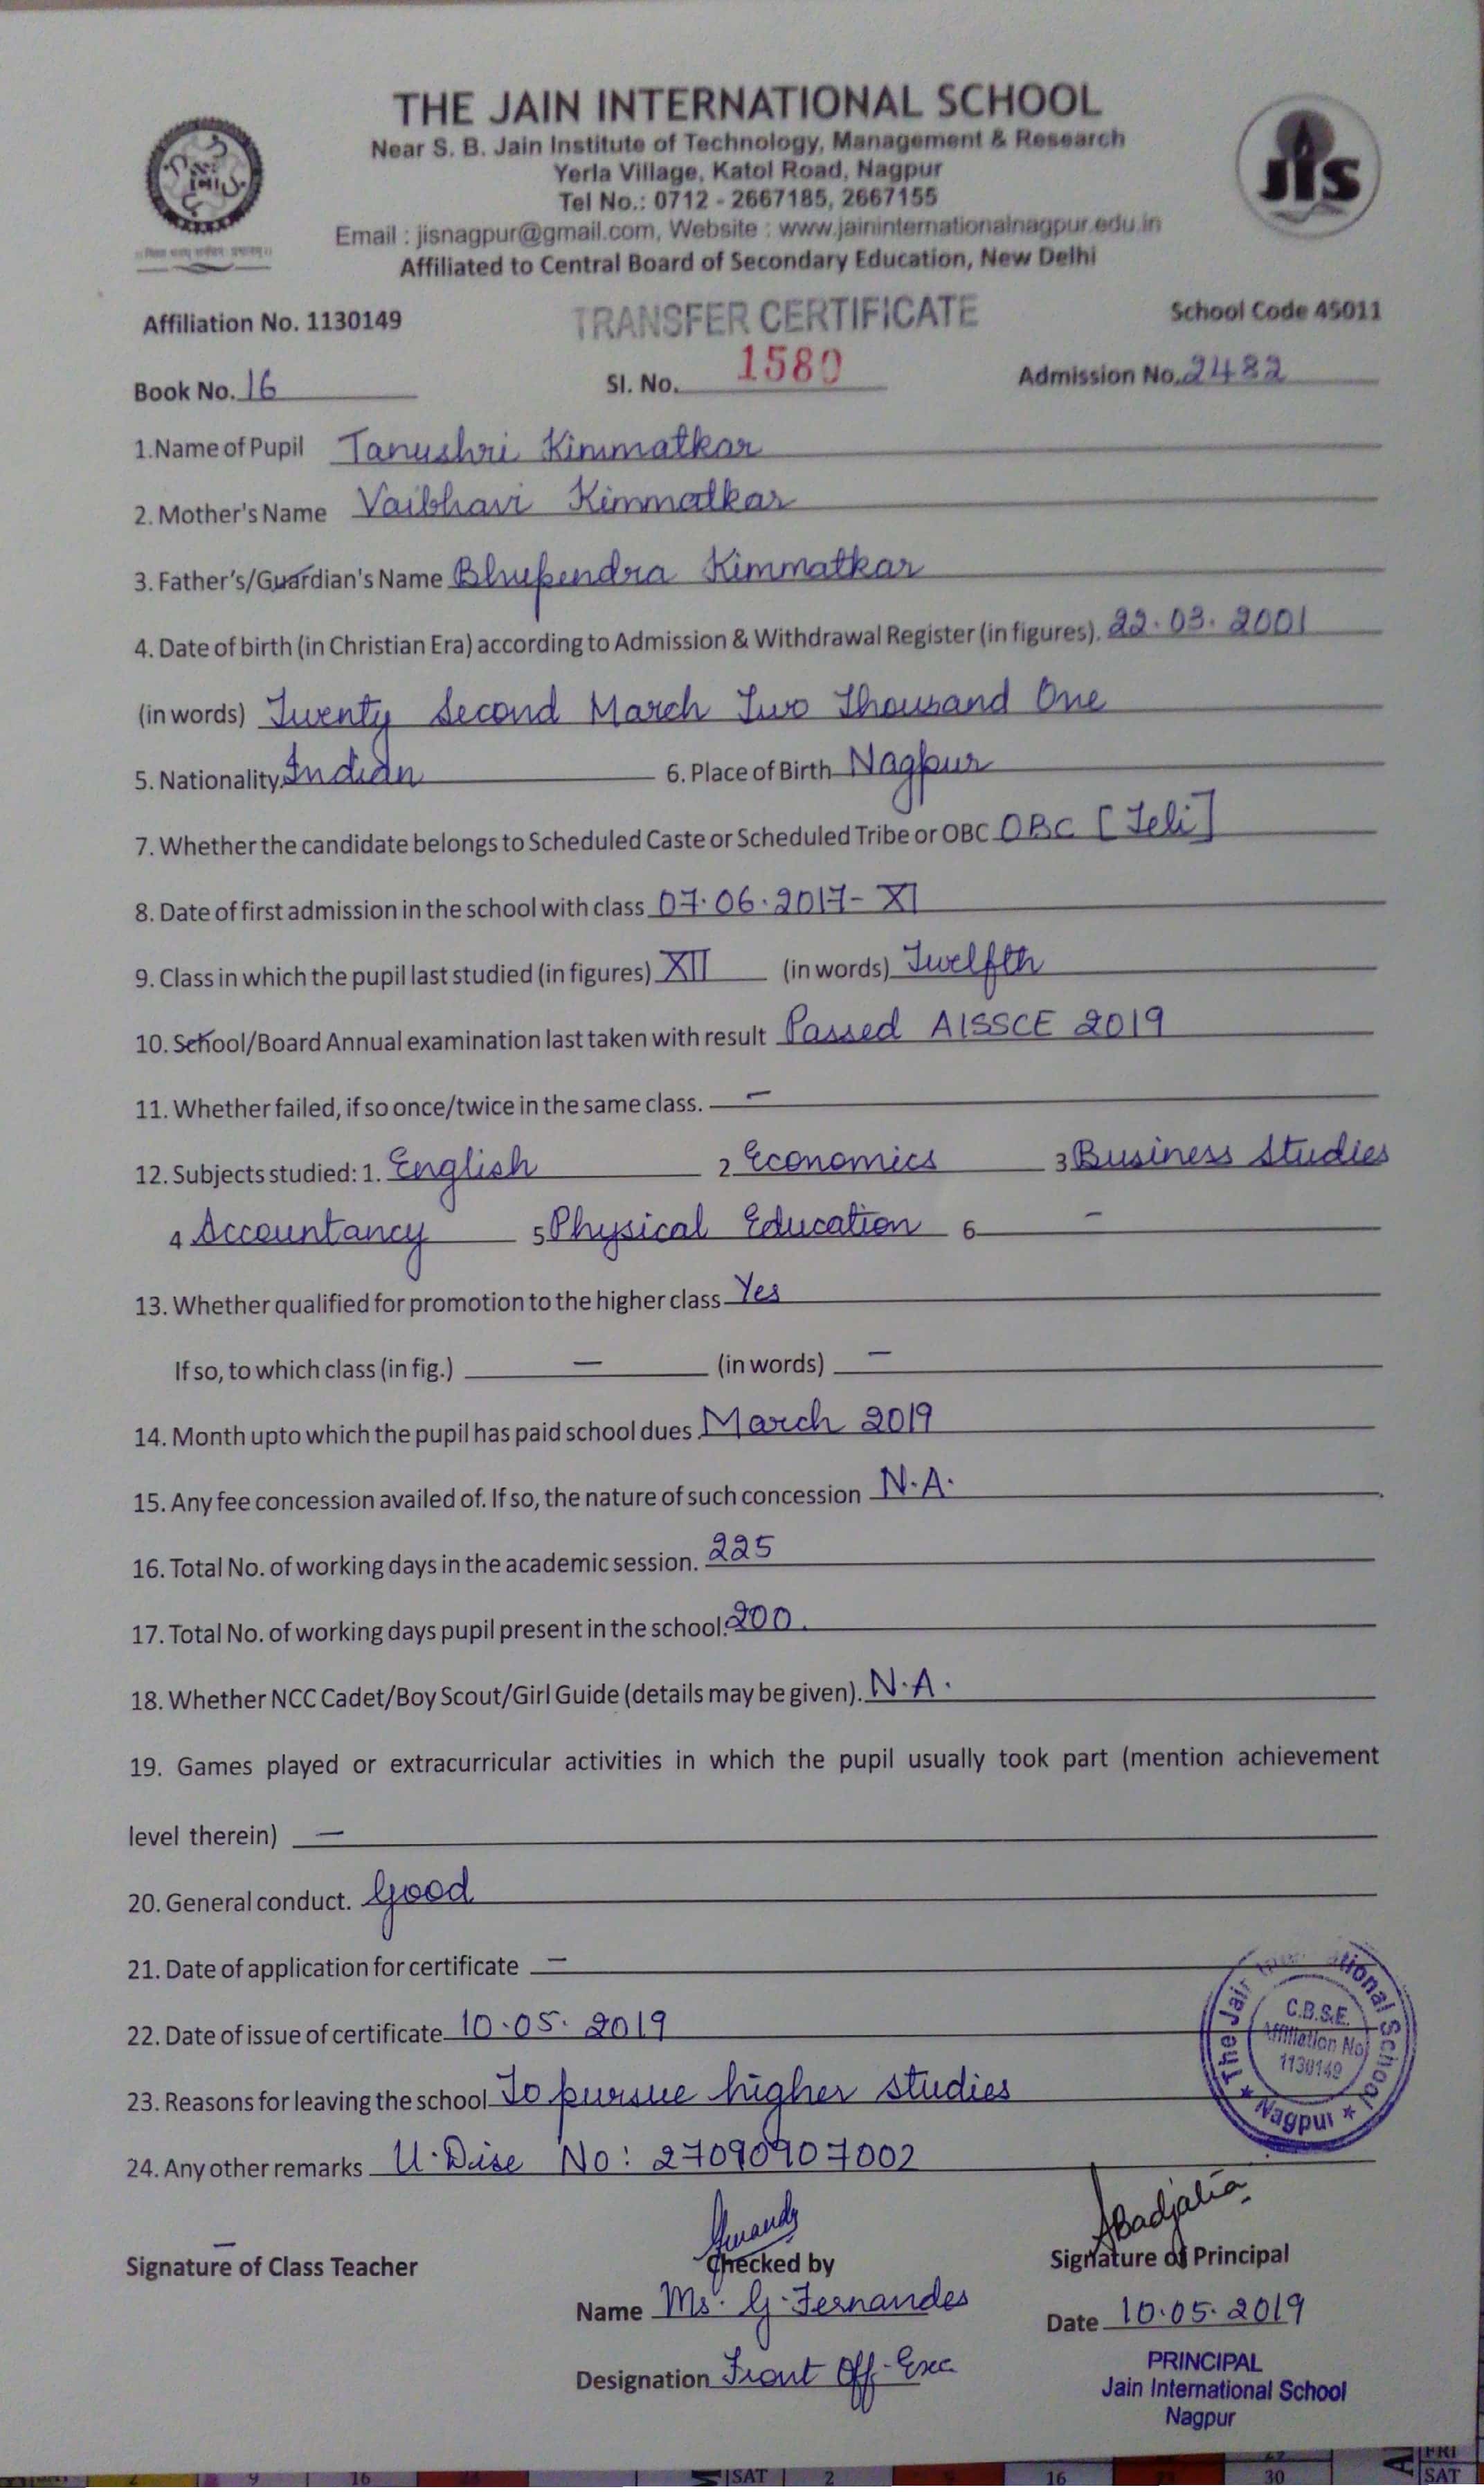 THE JAIN INTERNATIONAL SCHOOL
Near S. B. Jain Institute of Technology, Management & Research
Yerla Village, Katol Road, Nagpur
Tel No.: 0712 - 2667185, 2667155
Email : jisnagpur@gmail.com, Website : www.jaininternationalnagpur.edu.in
Affiliated to Central Board of Secondary Education, New Delhi
jis
Affiliation No. 1130149 TRANSFER CERTIFICATE School Code 45011
Book No. 16 Sl. No. 1580 Admission No. 2482
1.Name of Pupil Tanushri Kimmatkar
2. Mother's Name Vaibhavi Kimmatkar
3. Father's/Guardian's Name Bhupendra Kimmatkar
4. Date of birth (in Christian Era) according to Admission & Withdrawal Register (in figures). 22.03.2001
(in words) Twenty Second March Two Thousand One
5. Nationality Indian 6. Place of Birth Nagpur
7. Whether the candidate belongs to Scheduled Caste or Scheduled Tribe or OBC OBC [Teli]
8. Date of first admission in the school with class 07.06.2017 - XI
9. Class in which the pupil last studied (in figures) XII (in words) Twelfth
10. School/Board Annual examination last taken with result Passed AISSCE 2019
11. Whether failed, if so once/twice in the same class. —
12. Subjects studied: 1. English 2 Economics 3 Business Studies
4 Accountancy 5 Physical Education 6 -
13. Whether qualified for promotion to the higher class Yes
If so, to which class (in fig.) — (in words) —
14. Month upto which the pupil has paid school dues March 2019
15. Any fee concession availed of. If so, the nature of such concession N.A.
16. Total No. of working days in the academic session. 225
17. Total No. of working days pupil present in the school. 200.
18. Whether NCC Cadet/Boy Scout/Girl Guide (details may be given). N.A.
19. Games played or extracurricular activities in which the pupil usually took part (mention achievement
level therein) —
20. General conduct. Good
21. Date of application for certificate —
22. Date of issue of certificate 10.05.2019
23. Reasons for leaving the school To pursue higher studies
24. Any other remarks U.Dise No: 27090907002
The Jain International School
C.B.S.E.
Affiliation No
1130149
★ Nagpur ★
Abadjatia
Signature of Class Teacher Checked by Signature of Principal
Name Ms. G. Fernandes Date 10.05.2019
Designation Front Off. Exec
PRINCIPAL
Jain International School
Nagpur
FRI
9 16 SAT 2 16 30 SAT